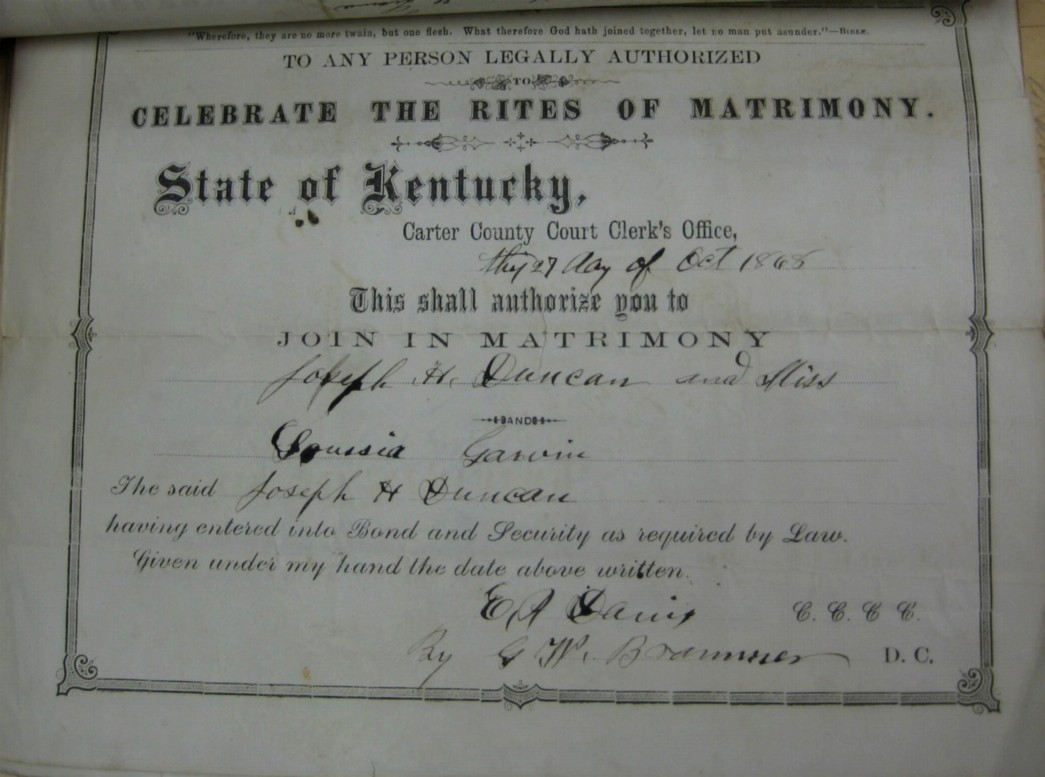 "Wherefore, they are no more twain, but one flesh. What therefore God hath joined together, let no man put asunder."—BIBLE.
TO ANY PERSON LEGALLY AUTHORIZED
TO
CELEBRATE THE RITES OF MATRIMONY.
State of Kentucky,
Carter County Court Clerk's Office,
this 27 day of Oct 1868
This shall authorize you to
JOIN IN MATRIMONY
Joseph H. Duncan and Miss
AND
Garvin
The said Joseph H Duncan
having entered into Bond and Security as required by Law.
Given under my hand the date above written.
Davis C. C. C. C.
By G W. Brammer D. C.